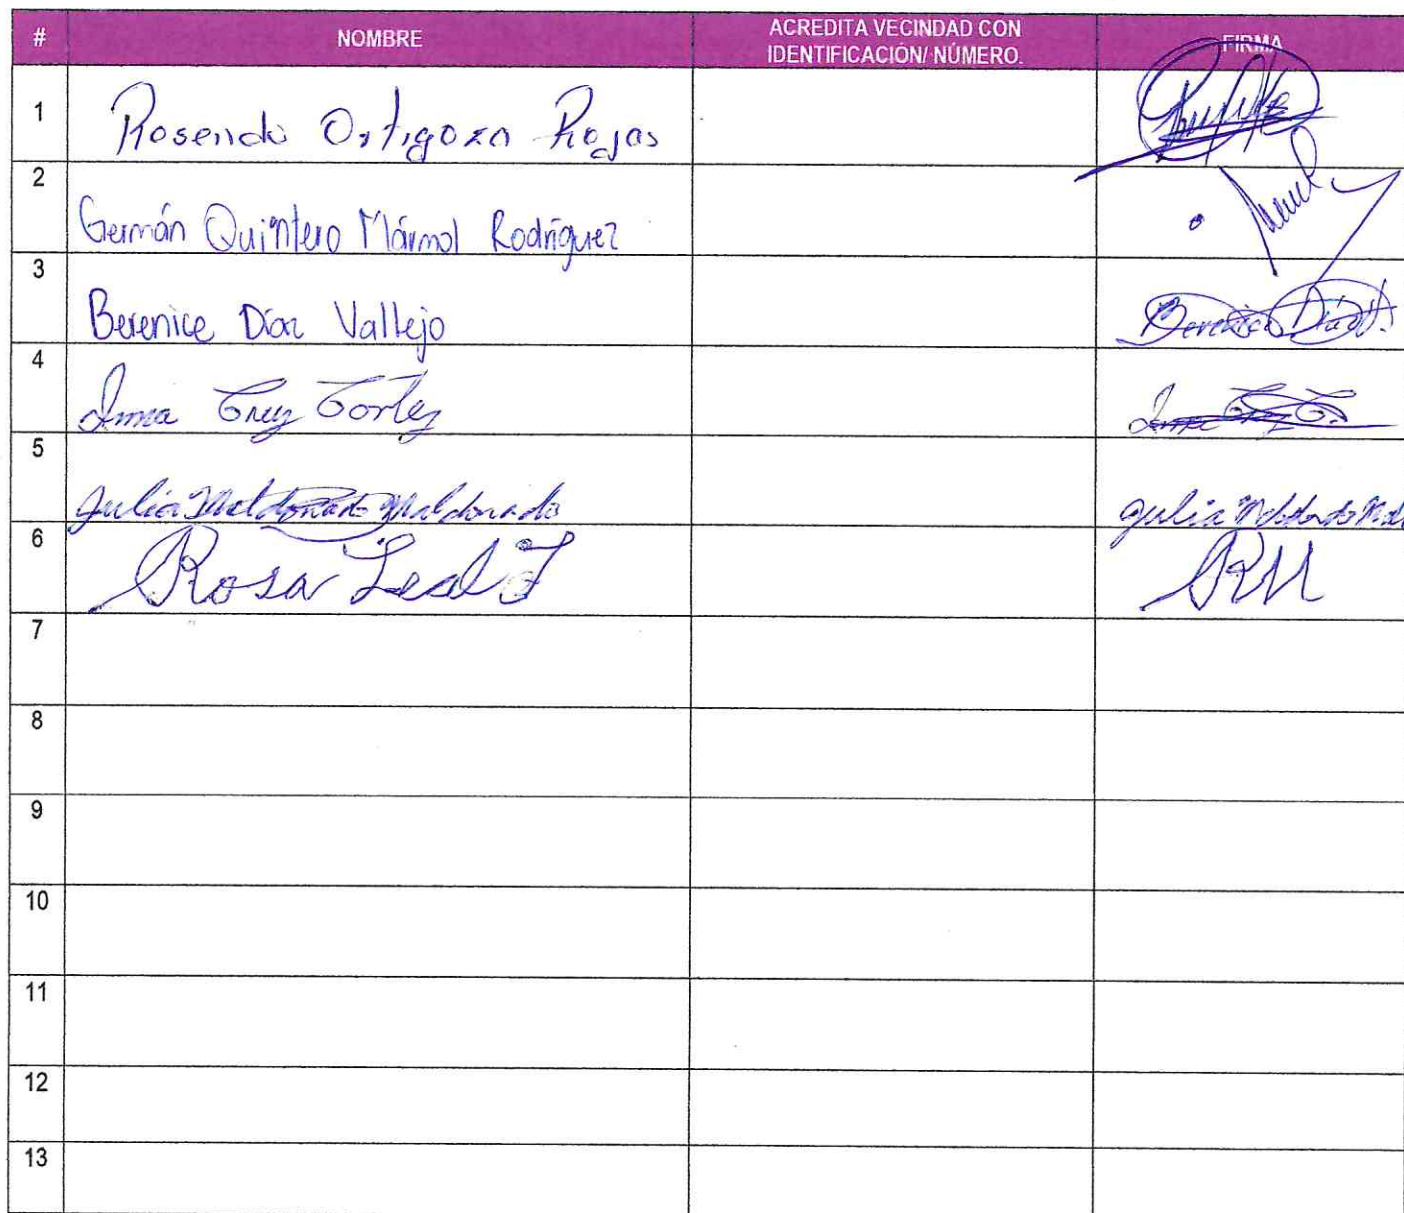 # NOMBRE ACREDITA VECINDAD CON IDENTIFICACIÓN/ NÚMERO. FIRMA
1 Rosendo Ortigoza Rojas
2 Germán Quintero Mármol Rodríguez
3 Berenice Díaz Vallejo Berenice Díaz V.
4 Irma Cruz Cortez Irma Cruz C.
5 Julia Maldonado Maldonado Julia
6 Rosa Leal J
7
8
9
10
11
12
13